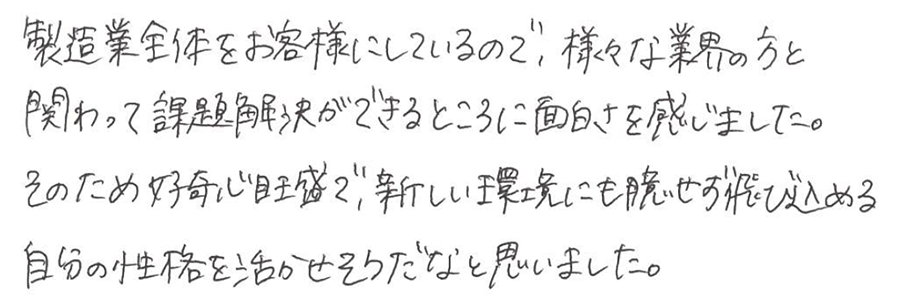 製造業全体をお客様にしているので、様々な業界の方と
関わって課題解決ができるところに面白さを感じました。
そのため好奇心旺盛で、新しい環境にも臆せず飛び込める
自分の性格を活かせそうだなと思いました。